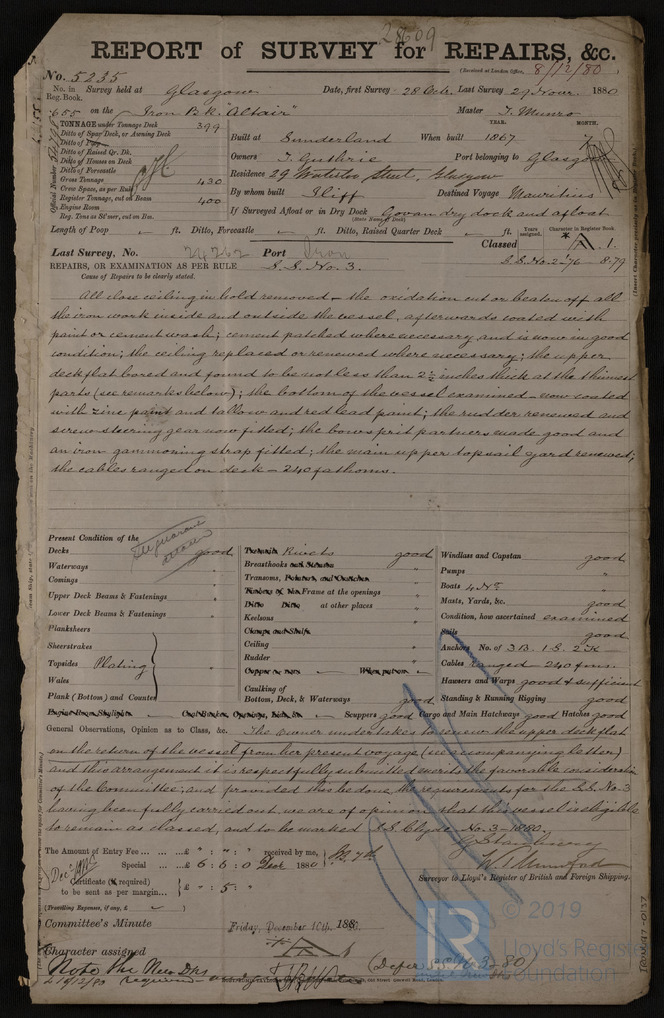 28609
REPORT of SURVEY for REPAIRS, &c.
(Received at London Office, 8/12/80)
No. 5235
No. in Reg. Book. 655
Survey held at Glasgow Date, first Survey 28 Octr. Last Survey 29 Novr. 1880
on the Iron Bk. "Altair" Master J. Munro
TONNAGE under Tonnage Deck 399
Ditto of Spar Deck, or Awning Deck
Ditto of Poop
Ditto of Raised Qr. Dk.
Ditto of Houses on Deck
Ditto of Forecastle
Gross Tonnage 430
Crew Space, as per Rule
Register Tonnage, cut on Beam 400
Engine Room
Reg. Tons as Steamer, cut on Bm.
YEAR. MONTH.
Built at Sunderland When built 1867 7
Owners J. Guthrie Port belonging to Glasgow
Residence 29 Waterloo Street, Glasgow
By whom built Iliff Destined Voyage Mauritius
If Surveyed Afloat or in Dry Dock Govan dry dock and afloat
(State Name of Dock)
Length of Poop ft. Ditto, Forecastle ft. Ditto, Raised Quarter Deck ft.
Years assigned. Character in Register Book.
Last Survey, No. 24262 Port Iron Classed A. 1.
S.S. No. 2-76 8.79
REPAIRS, OR EXAMINATION AS PER RULE S.S. No. 3.
Cause of Repairs to be clearly stated.
All close ceiling in hold removed – the oxidation cut or beaten off all
the iron work inside and outside the vessel, afterwards coated with
paint or cement wash; cement patched where necessary and is now in good
condition; the ceiling replaced or renewed where necessary; the upper
deck flat bored and found to be not less than 2½ inches thick at the thinnest
parts (see remarks below); the bottom of the vessel examined – now coated
with zinc paint and tallow and red lead paint; the rudder renewed and
screw steering gear now fitted; the bowsprit partners made good and
an iron gammoning strap fitted; the main upper topsail yard renewed;
the cables ranged on deck – 240 fathoms.
Present Condition of the
Decks good
Waterways "
Comings "
Upper Deck Beams & Fastenings "
Lower Deck Beams & Fastenings "
Planksheers
Sheerstrakes
Topsides Plating "
Wales
Plank (Bottom) and Counter
Engine Room Skylights
Treenails Rivets good
Breasthooks and Stemson "
Transoms, Pointers, and Crutches "
Timbers of the Frame at the openings "
Ditto Ditto at other places "
Keelsons "
Clamps and Shelfs
Ceiling "
Rudder "
Copper or new When put on
Caulking of
Bottom, Deck, & Waterways good
Windlass and Capstan good
Pumps "
Boats 4 No. "
Masts, Yards, &c. good
Condition, how ascertained examined
Sails good
Anchors No. of 3 B. 1 S. 2 K.
Cables ranged – 240 fms.
Hawsers and Warps good & sufficient
Standing & Running Rigging good
Scuppers good Cargo and Main Hatchways good Hatches good
General Observations, Opinion as to Class, &c. The owner undertakes to renew the upper deck flat
on the return of the vessel from her present voyage (see accompanying letter)
and this arrangement it is respectfully submitted merits the favorable consideration
of the Committee; and provided this be done the requirements for the S.S. No. 3
having been fully carried out, we are of opinion that this vessel is eligible
to remain as classed, and to be marked S.S. Clyde No. 3 – 1880.
The Amount of Entry Fee ... £ " : " : " received by me,
Special ... £ 6 : 6 : 0 Decr 1880
Certificate (if required) £ " : 5 : "
to be sent as per margin
(Travelling Expenses, if any, £ )
Surveyor to Lloyd's Register of British and Foreign Shipping.
Committee's Minute Friday, December 10th, 1880.
Character assigned A
Note the New Dks
required
(Defer S.S. No. 3-80)
© 2019
LR
Lloyd's Register
Foundation